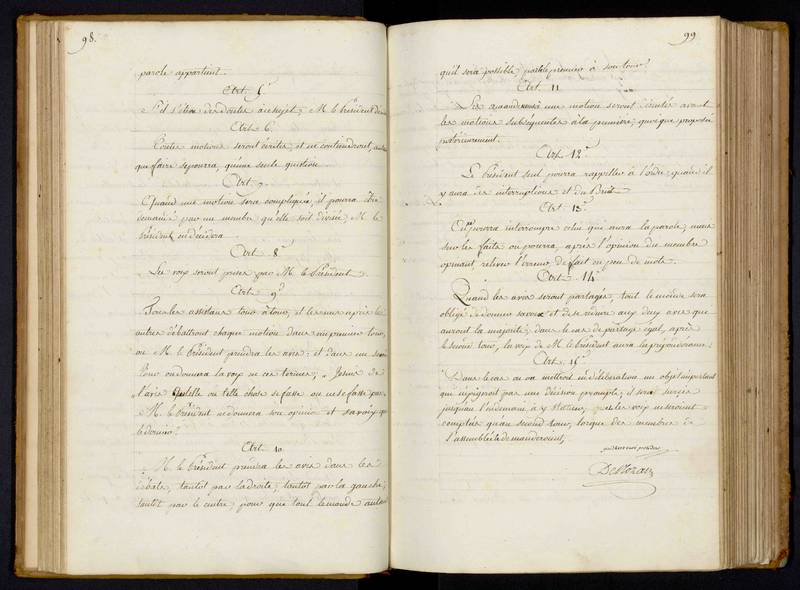 98.
parole appartient.
Art 5e
S'il s'élève des doutes à ce sujet, M. le Président
Art 6.
Toutes motions seront écrites, et ne contiendront, autant
que faire se pourra, qu'une seule question.
Art 7.
Quand une motion sera compliquée, il pourra être
demandé par un membre qu'elle soit divisée, M. le
Président en décidera.
Art 8e
Les voix seront prises par M. le Président.
Art 9e
Tous les assistans tour à tour, et les uns après les
autres débattront chaque motion dans un premier tour,
où M. le Président prendra les avis; et dans un second
tour on donnera la voix en ces termes;
l'avis qu'telle ou telle chose se fasse ou ne se fasse pas
M. le Président ne donnera son opinion et sa voix que
le dernier.
Art 10
M. le Président prendra les avis dans les
débats, tantôt par la droite, tantôt par la gauche,
tantôt par le centre, pour que tout le monde autant
99
qu'il sera possible, parle premier à son tour.
Art 11
Les amendemens à une motion seront écoutés avant
les motions subséquentes à la première, quoique proposée
postérieurement.
Art 12e
Le Président seul pourra rappeller à l'ordre quand il
y aura des interruptions et du Bruit.
Art 13e
On ne pourra interrompre celui qui aura la parole, mais
sur les faits on pourra, après l'opinion du membre
opinant, relever l'erreur de fait en peu de mots.
Art 14e
Quand les avis seront partagés, tout le monde sera
obligé de donner sa voix et de se réduire aux deux avis qui
auront la majorité; dans le cas de partage égal, après
le second tour, la voix de M. le Président aura la prépondérance.
Art 15e
Dans le cas où on mettroit en délibération un objet important
qui n'exigeroit pas une décision prompte, il sera sursis
jusqu'au lendemain à y statuer, les voix ne seroient
comptées qu'au second tour, lorsque des membres de
l'assemblée le demanderont,